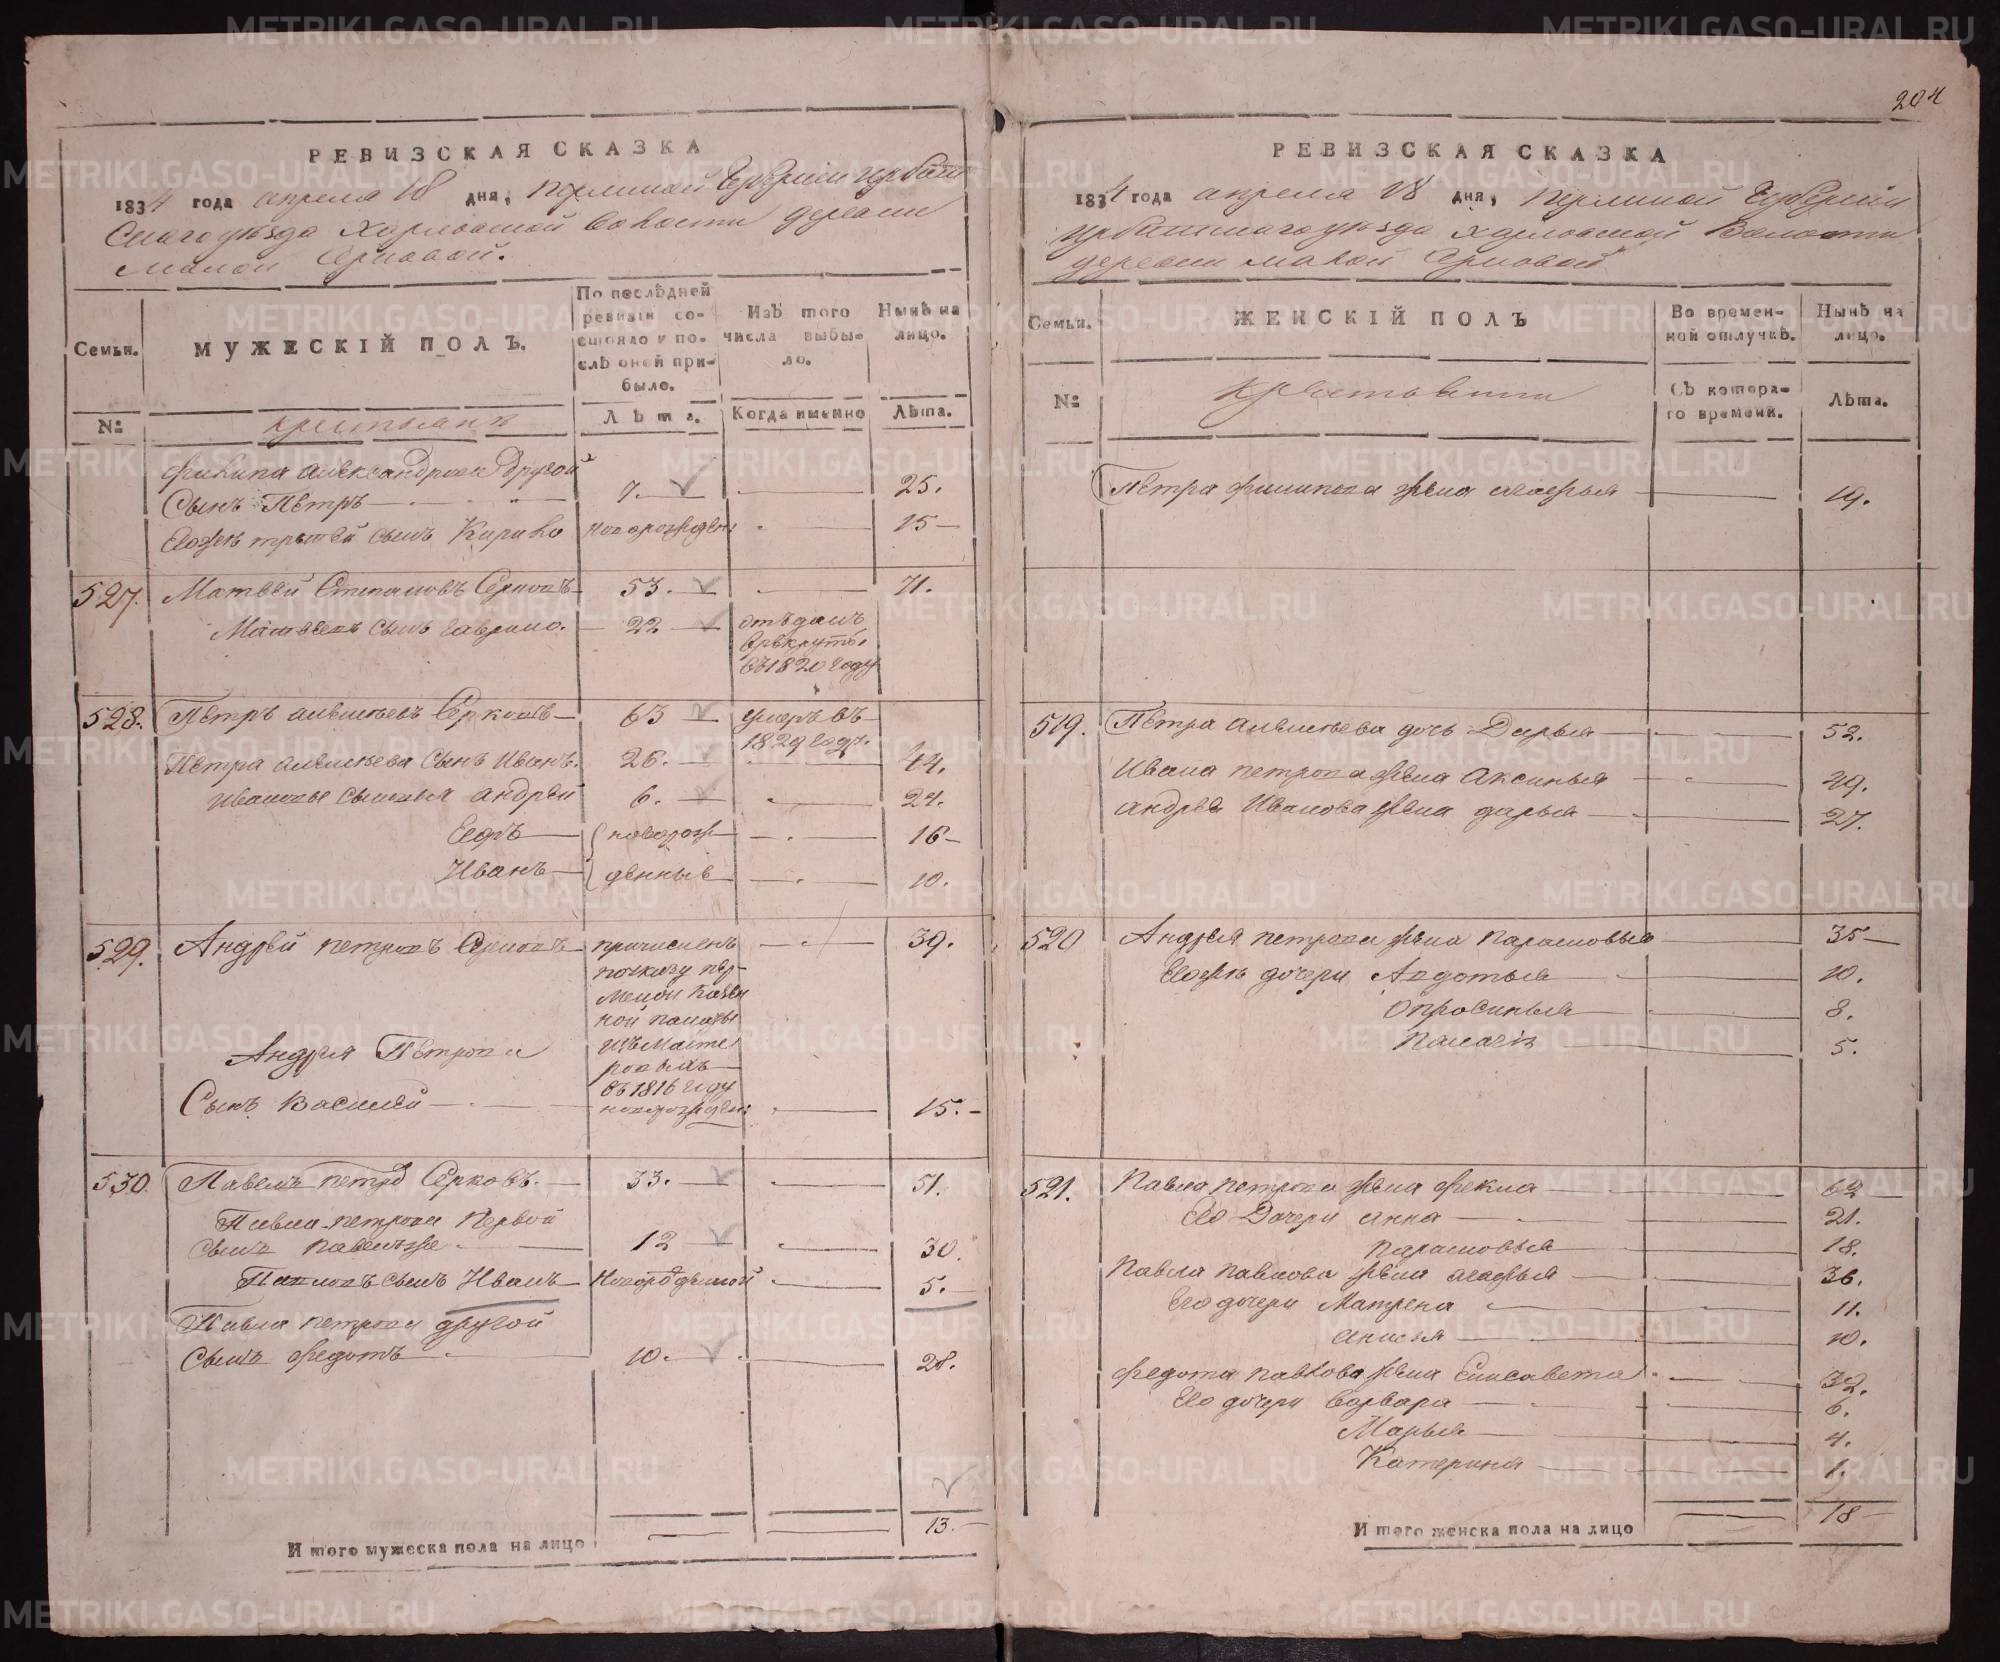 204
РЕВИЗСКАЯ СКАЗКА
1834 года апреля 18 дня, Пермской Губернии Ирбит
скаго уезда Харловской Волости деревни
Малой Серковой.
Семьи.
МУЖЕСКІЙ ПОЛЪ.
По послѣдней ревизіи состояло и послѣ оной прибыло.
Изъ того числа выбыло.
Нынѣ на лицо.
№
крестьянъ
Лѣта.
Когда именно
Лѣта.
Филипа Александрова другой
Сынъ Петръ 7. 25.
Егожъ третей сынъ Кирило новорожден: 15
527. Матвей Степановъ Серковъ 53. 71.
Матвеевъ сынъ Гаврило. 22 отъданъ
в рекруты
въ 1820 году
528. Петръ Алексеевъ Серковъ 63 умеръ въ
1829 году.
Петра Алексеева сынъ Иванъ. 26. 44.
Ивановы сыновья Андрей 6. 24.
Егоръ новорож 16
Иванъ денныя 10.
529. Андрей Петровъ Серковъ причисленъ 39.
по указу пер
мской казен
ной палаты
изъ масте
ровыхъ
въ 1816 году
Андрея Петрова
Сынъ Василей новорожден: 15.
530. Павелъ Петровъ Серковъ. 33. 51.
Павла Петрова Первой
сынъ Павелъ же 12 30.
Павловъ сынъ Иванъ Новорожденной 5.
Павла Петрова другой
Сынъ Федотъ 10. 28.
Итого мужеска пола на лицо 13.
РЕВИЗСКАЯ СКАЗКА
1834 года апреля 18 дня, Пермской Губернии
Ирбитскаго уезда Харловской Волости
деревни Малой Серковой
Семьи.
ЖЕНСКІЙ ПОЛЪ
Во временной отлучкѣ.
Нынѣ на лицо.
№
Съ котораго времени.
Лѣта.
Петра Филипова жена 19.
519. Петра Алексеева дочь Дарья 52.
Ивана Петрова жена Аксинья 49.
Андрея Иванова жена Дарья 27.
520 Андрея Петрова жена Парасковья 35
Егожъ дочери Авдотья 10.
Опросинья 8.
5.
521. Павла Петрова жена Фекла 62
Его Дочери Анна 21.
Парасковья 18.
Павла Павлова жена Агафья 36.
Его дочери Матрена 11.
Анисья 10.
Федота Павлова жена Елисавета 32.
Его дочери Варвара 6.
Марья 4.
Катерина 1.
Итого женска пола на лицо 18
METRIKI.GASO-URAL.RU